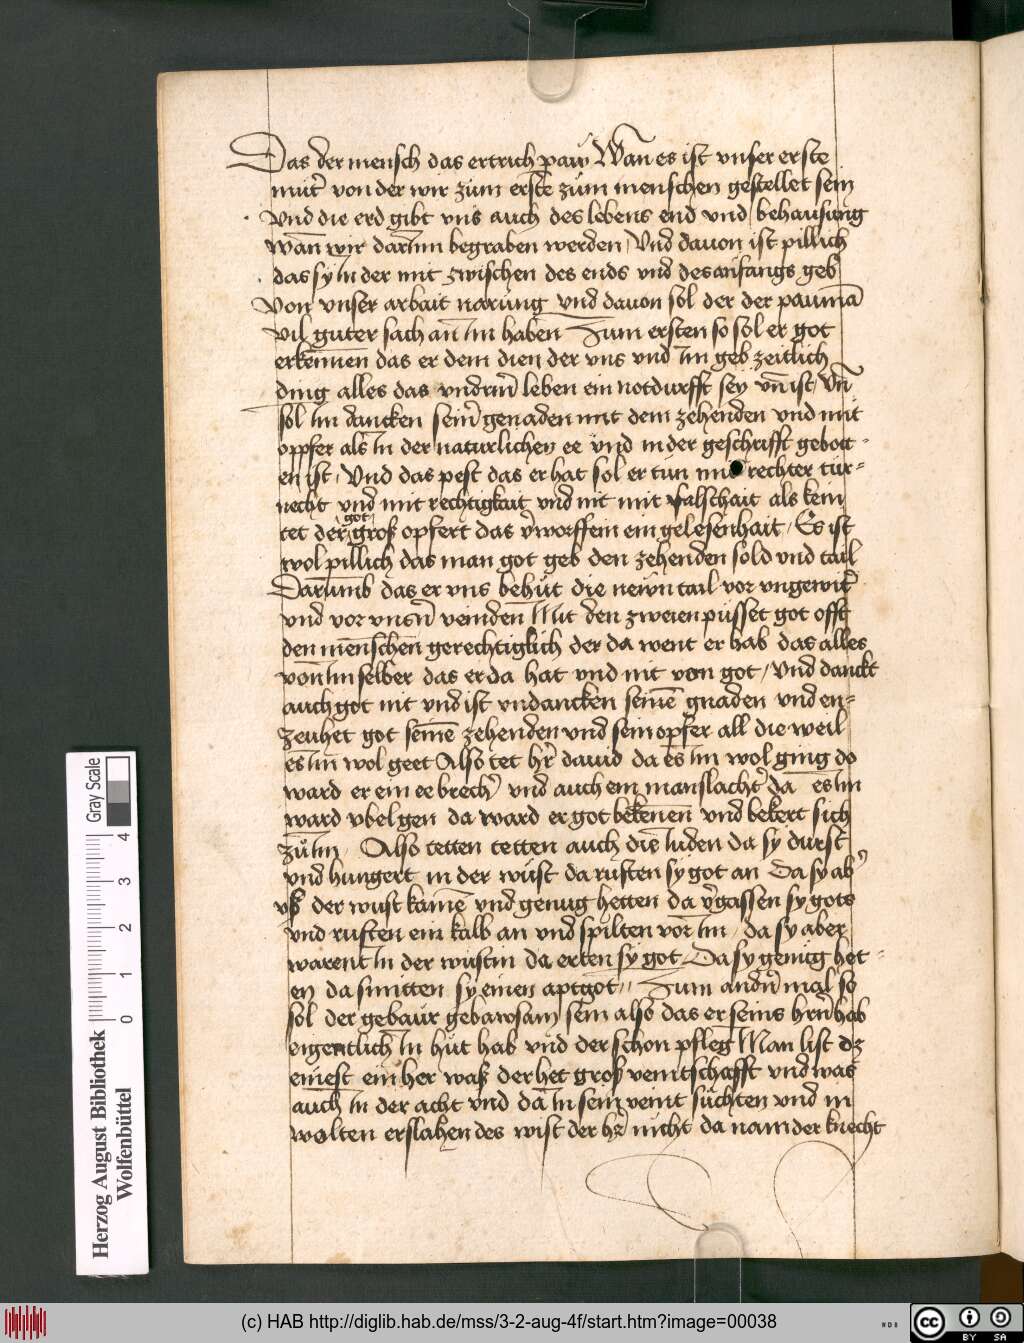 Das der mensch das ertrich paw Wan̄ es ist vnser erste
muter von der wir zum erste zum menschen gestellet sein
vnd die erd gibt vns auch des lebens end vnd behausung
wan̄ wir darinn begraben werden / Vnd dauon ist pillich
das sy in der mit zwischen des ends vnd des anfangs geb
von vnser arbait narung vnd dauon sol der der pauman̄
vil guter sach an im haben Zum ersten so sol er got
erkennen das er dem dien der vns vnd im geb zeitlich
ding alles das vnderm leben ein notdurfft sey vn̄ ist / vn̄
sol im dancken seiner genaden mit dem zehenden vnd mit
oppfer als in der naturlichen ee vnd in der geschrifft gebott-
en ist / Vnd das pest das er hat sol er tun mit rechter tur-
necht vnd mit rechtigkait vnd nit mit falschait als kein
tet der got groß opfert das verworffein ein gelesenhait / Es ist
wol pillich das man got geb den zehenden sold vnd tail
Darumb das er vns behut die newn tail vor vngewiter
vnd vor vnsern veinden Mit den zweien pusset got offt
den menschen gerechtiglich der da went er hab das alles
von im selber das er da hat vnd nit von got / Vnd danckt
auch got nit vnd ist vndancken seinē gnaden vnd en-
zeuhet got seinē zehenden vnd sein opfer all die weil
es im wol geet Also tet her dauid da es im wol ging do
ward er ein eebrecher vnd auch ein manslachter da es im
ward vbel gen da ward er got bekenen vnd bekert sich
zu im / Also tetten tetten auch die iuden da sy durst
vnd hungert in der wust da rufften sy got an Da sy aber
vß der wust kamē vnd genug hetten da vergassen sy gots
vnd rufften ein kalb an vnd spilten vor im / da sy aber
warent in der wustin da erten sy got / Da sy genug het-
en da smitten sy einen aptgot // Zum andern mal so
sol der gebaur gehawsam sein also das er seins hern hab
eigentlich in hut hab vnd der schon pfleg Man list dz
einest ein her waß der het groß veintschafft vnd was
auch in der acht vnd da in sein veint suchten vnd in
wolten erslahen des wist der her nicht da nam der knecht
Herzog August Bibliothek
Wolfenbüttel
0 1 2 3 4
Gray Scale
(c) HAB http://diglib.hab.de/mss/3-2-aug-4f/start.htm?image=00038
WDB
cc BY SA